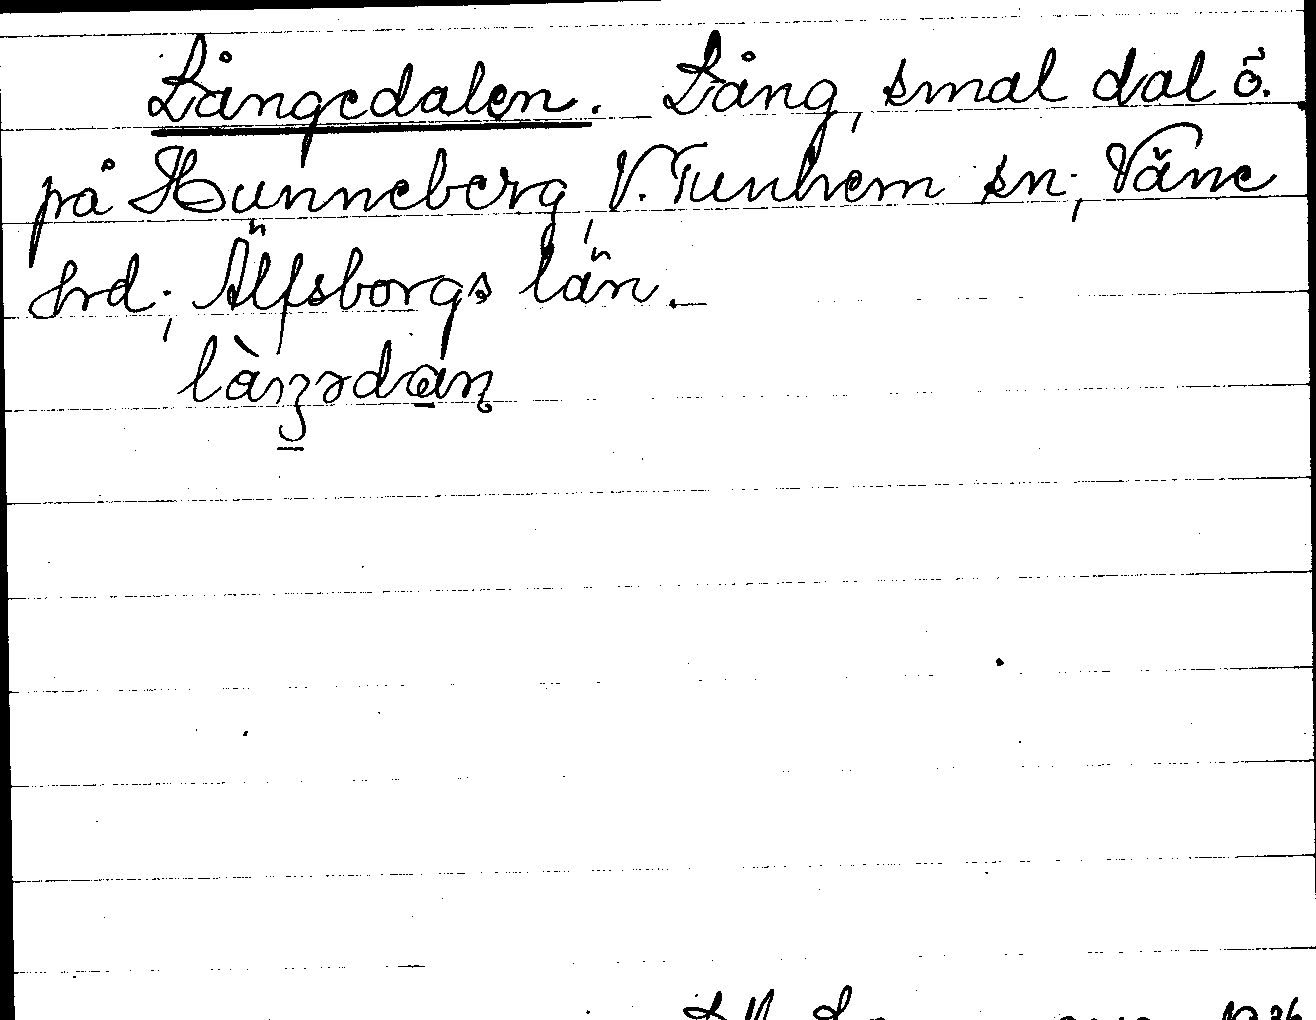 Långedalen. Lång, smal dal ö.
på Hunneberg, V. Tunhem sn, Väne
hrd, Älfsborgs län.